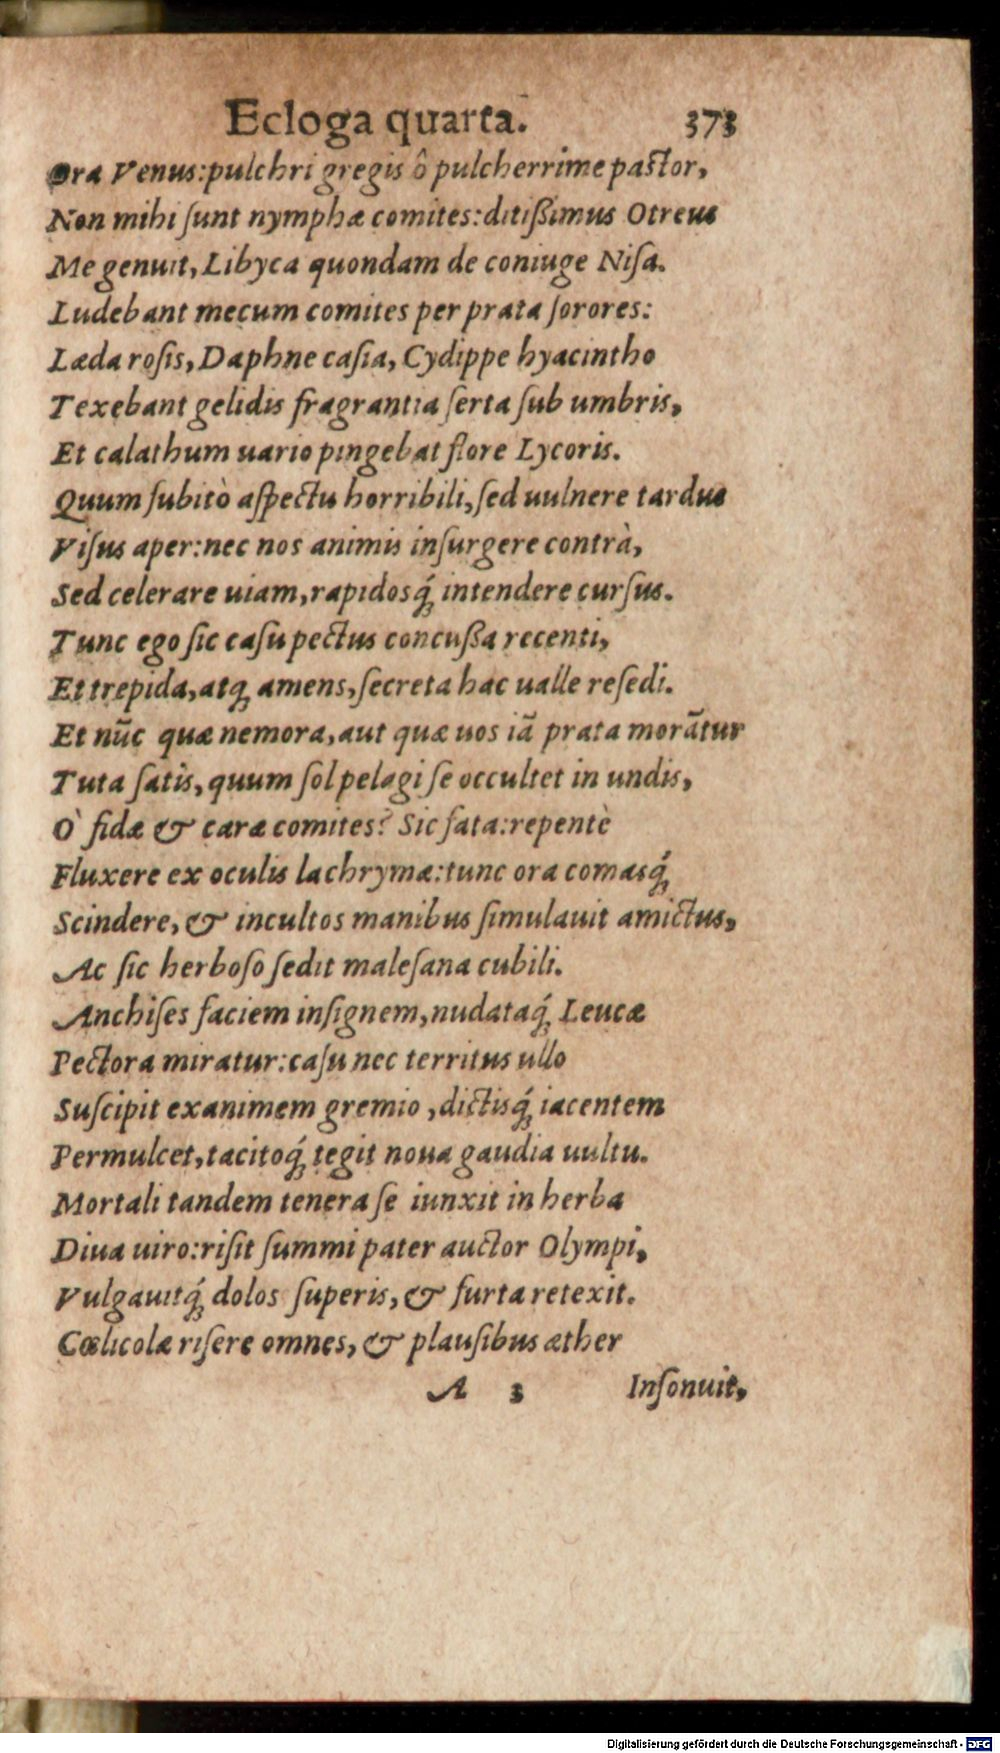 Ecloga quarta. 373
Ora Venus: pulchri gregis ô pulcherrime pastor,
Non mihi ſunt nymphæ comites: ditißimus Otreus
Me genuit, Libyca quondam de coniuge Niſa.
Ludebant mecum comites per prata ſorores:
Læda roſis, Daphne caſia, Cydippe hyacintho
Texebant gelidis fragrantia ſerta ſub umbris,
Et calathum uario pingebat flore Lycoris.
Quum ſubitò aſpectu horribili, ſed uulnere tardus
Viſus aper: nec nos animis inſurgere contrà,
Sed celerare uiam, rapidosq́; intendere curſus.
Tunc ego ſic caſu pectus concußa recenti,
Et trepida, atq; amens, ſecreta hac ualle reſedi.
Et nūc quæ nemora, aut quæ uos iā prata morātur
Tuta ſatis, quum ſol pelagi ſe occultet in undis,
Ò fidæ & caræ comites? Sic fata: repentè
Fluxere ex oculis lachrymæ: tunc ora comasq́;
Scindere, & incultos manibus ſimulauit amictus,
Ac ſic herboſo ſedit maleſana cubili.
Anchiſes faciem inſignem, nudataq́; Leucæ
Pectora miratur: caſu nec territus ullo
Suſcipit exanimem gremio, dictisq́; iacentem
Permulcet, tacitoq́; tegit noua gaudia uultu.
Mortali tandem tenera ſe iunxit in herba
Diua uiro: riſit ſummi pater auctor Olympi,
Vulgauitq́; dolos ſuperis, & furta retexit.
Cœlicolæ riſere omnes, & plauſibus æther
A 3 Inſonuit,
Digitalisierung gefördert durch die Deutsche Forschungsgemeinschaft - DFG